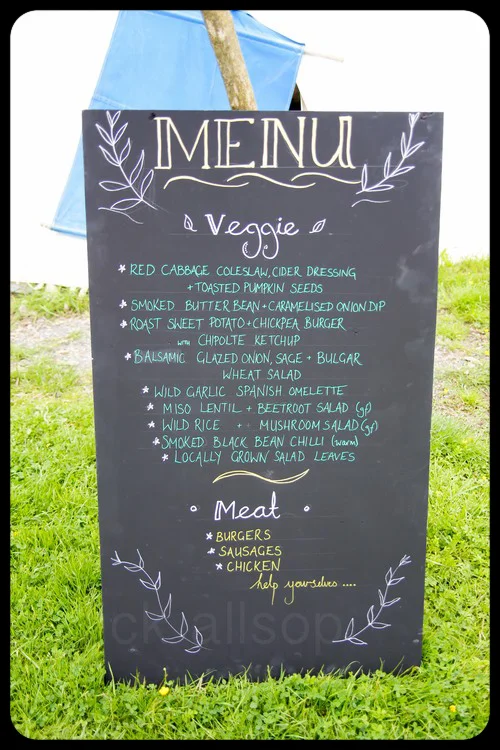 MENU
Veggie
* RED CABBAGE COLESLAW, CIDER DRESSING
+ TOASTED PUMPKIN SEEDS
* SMOKED BUTTER BEAN + CARAMELISED ONION DIP
* ROAST SWEET POTATO + CHICKPEA BURGER
with CHIPOLTE KETCHUP
* BALSAMIC GLAZED ONION, SAGE + BULGAR
WHEAT SALAD
* WILD GARLIC SPANISH OMELETTE
* MISO LENTIL + BEETROOT SALAD (gf)
* WILD RICE + MUSHROOM SALAD (gf)
* SMOKED BLACK BEAN CHILLI (warm)
* LOCALLY GROWN SALAD LEAVES
Meat
* BURGERS
* SAUSAGES
* CHICKEN
help yourselves ....